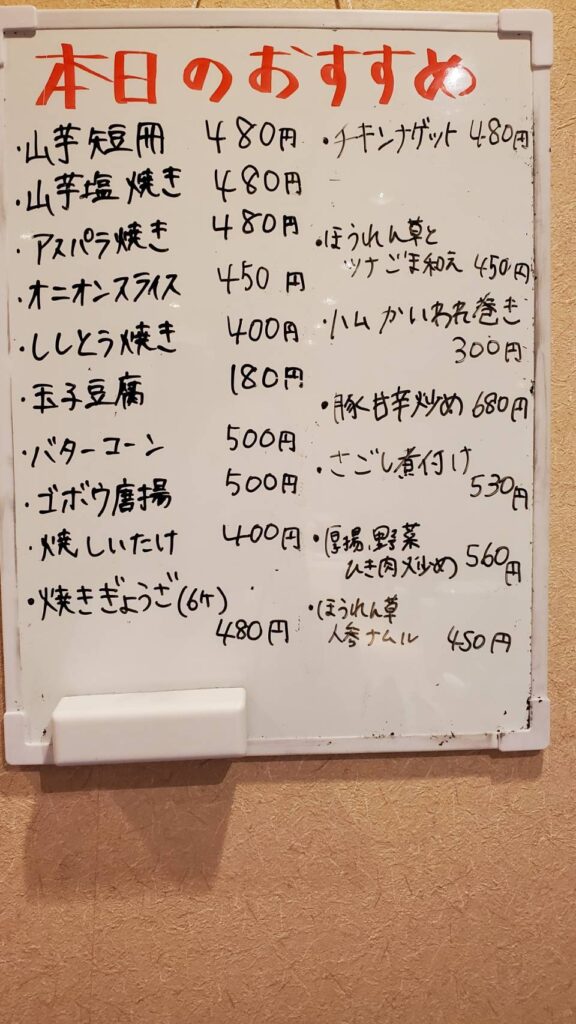 本日のおすすめ
・山芋短冊 480円
・山芋塩焼き 480円
・アスパラ焼き 480円
・オニオンスライス 450円
・ししとう焼き 400円
・玉子豆腐 180円
・バターコーン 500円
・ゴボウ唐揚 500円
・焼しいたけ 400円
・焼きぎょうざ(6ケ)
480円
・チキンナゲット 480円
・ほうれん草と
ツナごま和え 450円
・ハムかいわれ巻き
300円
・豚甘辛炒め 680円
・さごし煮付け
530円
・厚揚、野菜
ひき肉炒め 560円
・ほうれん草
人参ナムル 450円